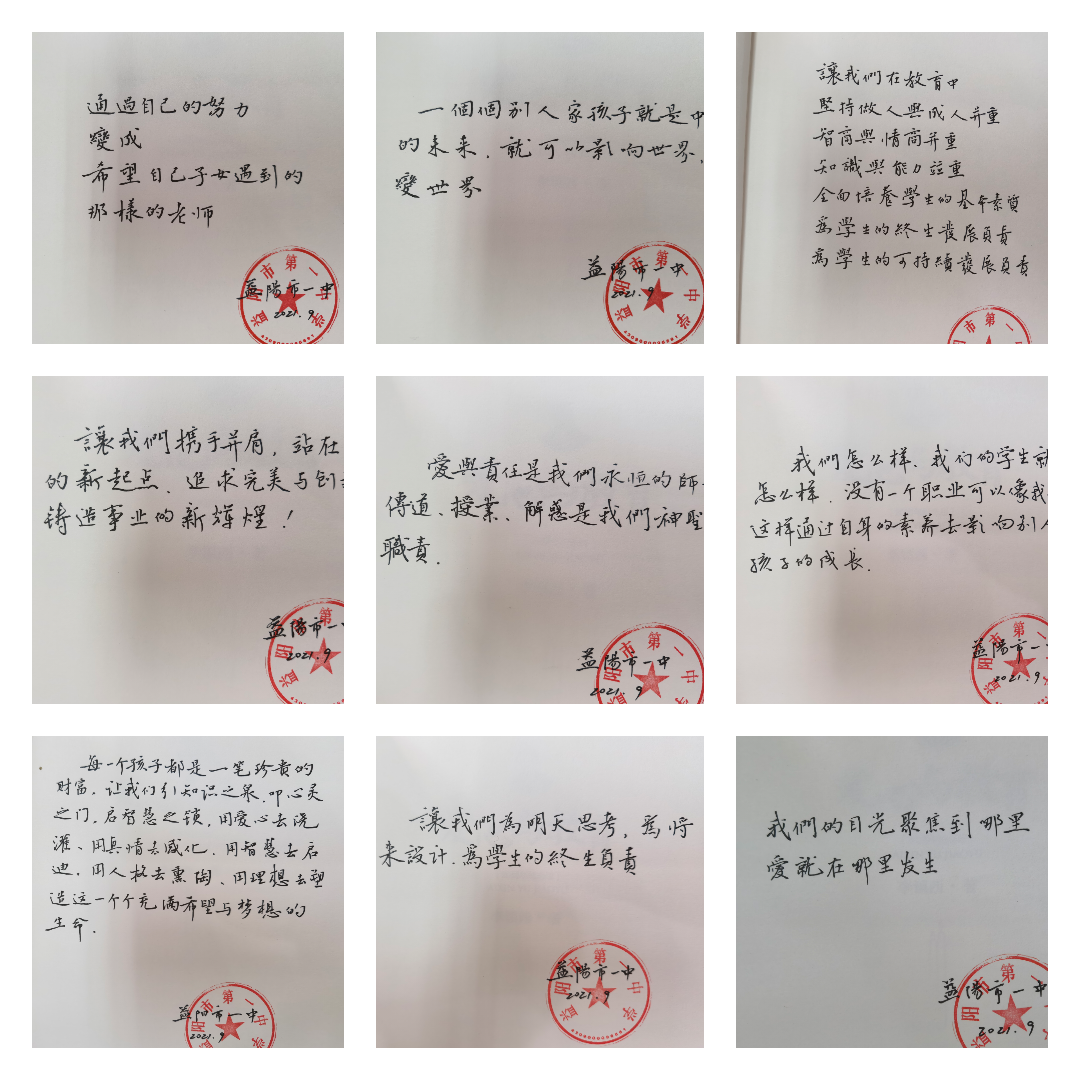 通過自己的努力
變成
希望自己子女遇到的
那樣的老师
益陽市一中
2021.9
益阳市第一中学
一個個别人家孩子就是中
的未来，就可以影响世界，
變世界
益陽市一中
2021.9
益阳市第一中学
讓我們在教育中
堅持做人與成人并重
智商與情商并重
知識與能力並重
全面培養學生的基本素質
為學生的終生發展負責
為學生的可持續發展負責
市第一
讓我們携手并肩，站在
的新起点、追求完美与创
铸造事业的新辉煌！
益陽市一
2021.9
益阳市第
愛與責任是我們永恒的師
傳道、授業、解惑是我們神聖
職責.
益陽市一中
2021.9
益阳市第一中
我們怎么样、我们的学生就
怎么样．没有一个职业可以像我
这样通过自身的素养去影向别人
孩子的成长.
益陽市一
2021.9
益阳市第
每一个孩子都是一笔珍贵的
财富，让我们引知识之泉，叩心灵
之门，启智慧之锁，用爱心去浇
灌、用真情去感化、用智慧去启
迪，用人格去熏陶、用理想去塑
造这一个个充满希望与梦想的
生命.
益陽市一中
2021.9
益阳市第一中学
讓我們為明天思考，為将
来設计．為學生的終生負責
益陽市一中
2021.9
益阳市第一中学
我們的目光聚焦到哪里
愛就在哪里发生
益陽市一中
2021.9
益阳市第一中